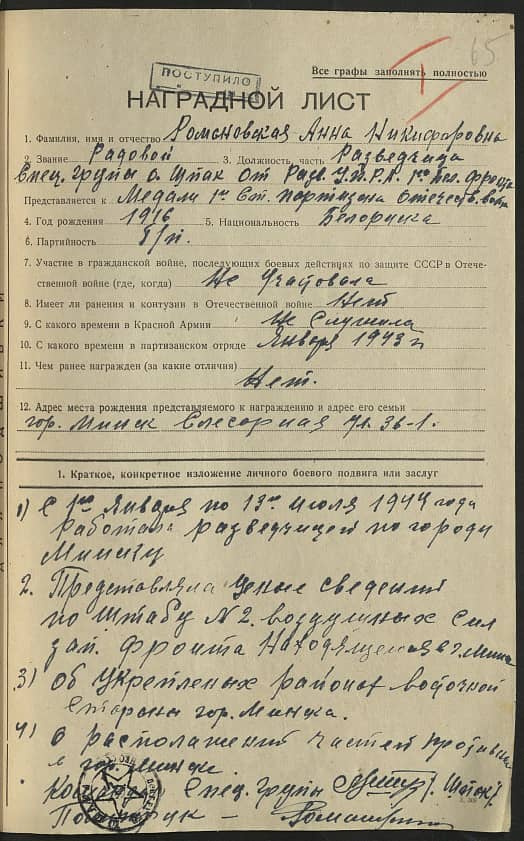 65
ПОСТУПИЛО
Все графы заполнять полностью
НАГРАДНОЙ ЛИСТ
1. Фамилия, имя и отчество Романовская Анна Никифоровна
2. Звание Радовой 3. Должность, часть Разведчица
Спец. групы о. Шпак от Разв. 1го Бел. фронта
Представляется к Медали 1й Ст. партизана Отечеств. войны
4. Год рождения 1916 5. Национальность Белоруска
6. Партийность Б/п.
7. Участие в гражданской войне, последующих боевых действиях по защите СССР в Отече-
ственной войне (где, когда) Не Участовала
8. Имеет ли ранения и контузии в Отечественной войне Нет
9. С какого времени в Красной Армии Не Служила
10. С какого времени в партизанском отряде Января 1943 г
11. Чем ранее награжден (за какие отличия)
Нет.
12. Адрес места рождения представляемого к награждению и адрес его семьи
гор. Минск Слесарная 36-1.
1. Краткое, конкретное изложение личного боевого подвига или заслуг
1) С 1го Января по 13го июля 1944 года
Работала разведчицей по городу
Минску
2. Представляла ценые сведения
по Штабу №2. воздушных Сил
зап. фронта Находящегося в г. Минске
3) об укрепленых районах восточной
Стороны гор. Минска.
4) о расположений частей противника
в гор. Минске.
Спец. групы Шпак